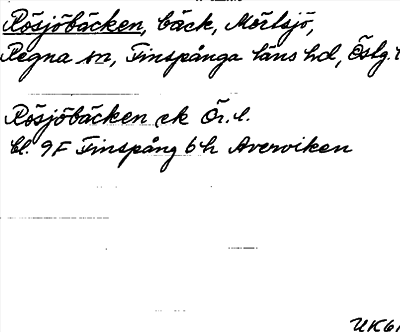 Rösjöbäcken, bäck, Mörtsjö,
Regna sn, Finspånga läns hd, Östg.
Rösjöbäcken ek Ör. l.
bl. 9F Finspång 6h Averviken
UK61